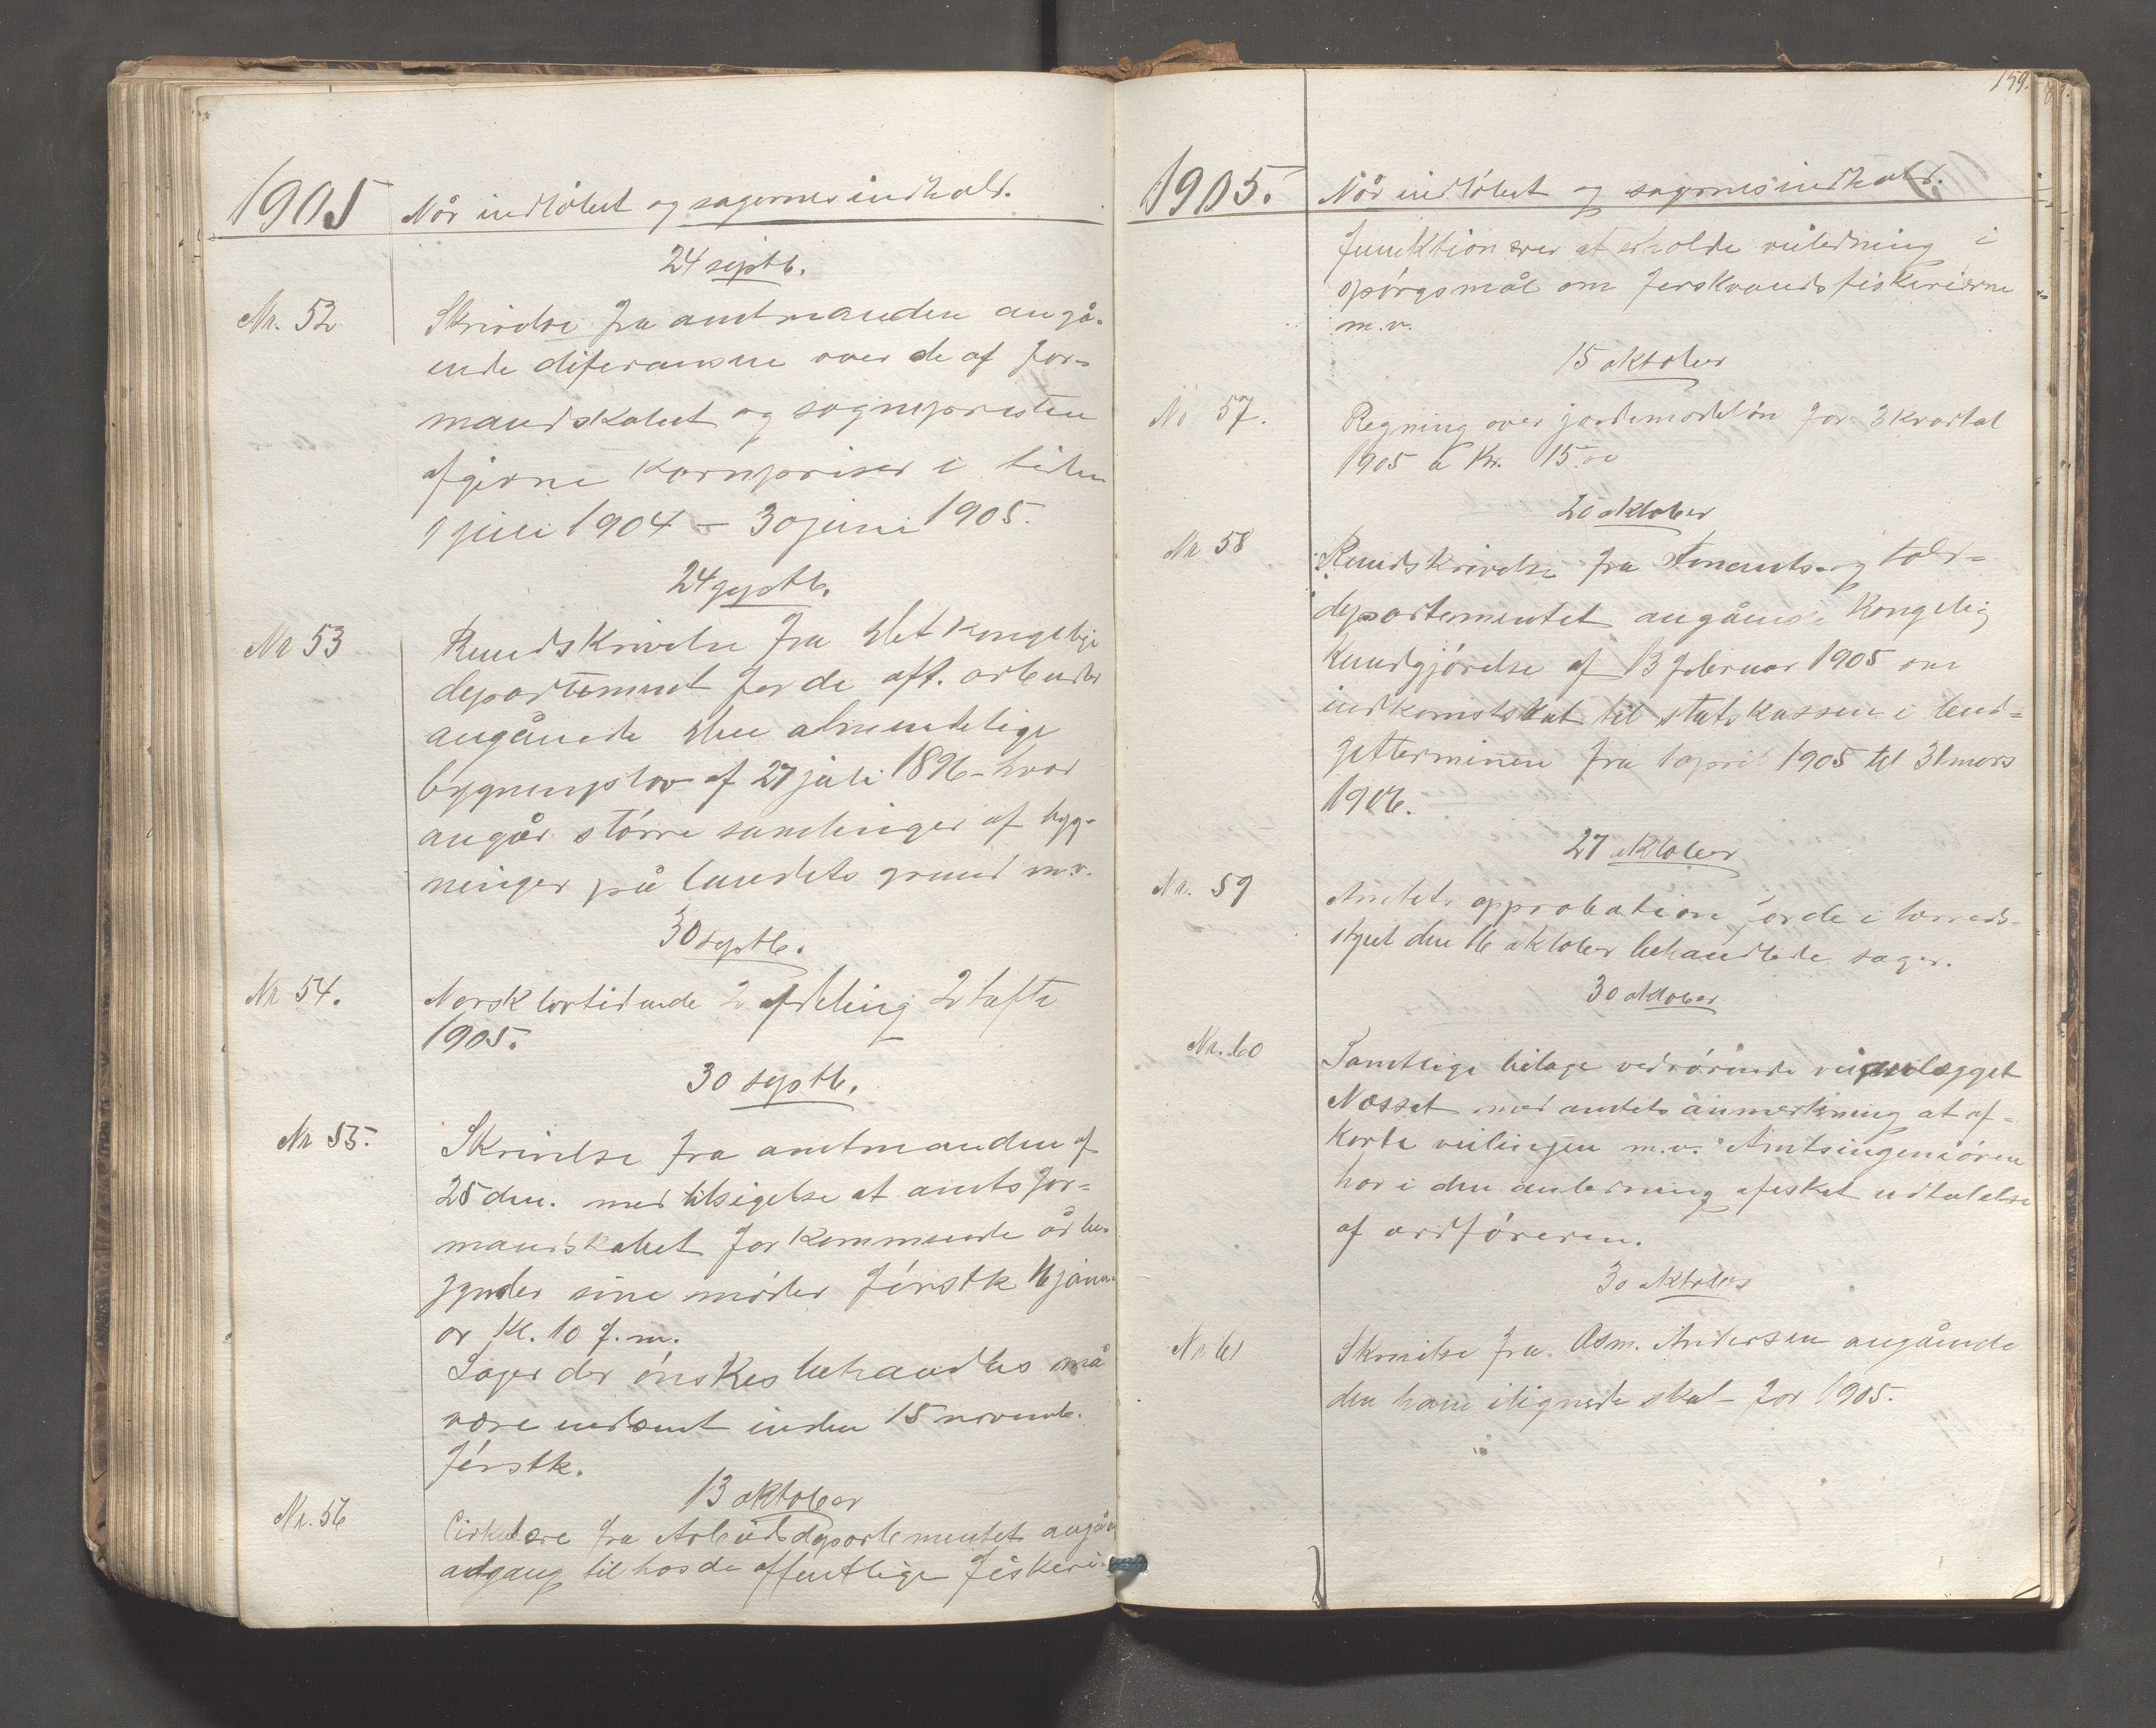 1905 Når indløbet og sagernes indhold.
24 septb.
Nr. 52 Skrivelse fra amtmanden angå-
ende diferansene over de af for-
mandskabet og sognepresten
afgivne kornpriser i tiden
1 juli 1904 – 30 juni 1905.
24 septb.
Nr 53 Rundskrivelse fra det kongelige
departement for de off. arbeider
angående den almindelige
bygningslov af 27 juli 1896 – hvor
angår større samlinger af byg-
ninger på landets grund m.v.
30 septb.
Nr 54. Norsk lovtidende 2 afdeling 2 hefte
1905.
30 septb.
Nr 55. Skrivelse fra amtmanden af
25 dm. med tilsigelse at amtsfor-
mandskabet for kommende år be-
gynder sine møder førstk 16 janu-
ar kl. 10 f.m.
Sager der ønskes behandles må
være indsent inden 15 novemb.
førstk.
13 oktober
Nr. 56 Cirkulære fra Arbeidsdepartementet angåe
adgang til hos de offentlige fiskeri-
159.
1905. Når indløbet og sagernes indhold.
funktionærer at erholde veiledning i
spørgsmål om ferskvandsfiskerierne
m.v.
15 oktober
No 57. Regning over jordemorløn for 3 kvartal
1905 a Kr. 15.00
20 oktober
Nr 58 Rundskrivelse fra Finants- og told-
departementet angående Kongelig
Kundgjørelse af 13 februar 1905 om
indkomstskat til statskassen i bud-
getterminen fra 1 april 1905 til 31 mars
1906.
27 oktober
Nr. 59 Amtets approbation for de i herreds-
styret den 16 oktober behandlede sager.
30 oktober
Nr. 60 Samtlige bilage vedrørende veianlægget
Næsset med amtets anmerkning at af-
korte veilinjen m.v. Amtsingeniøren
har i den anledning afæsket udtalelse
af ordføreren.
30 oktober
Nr 61 Skrivelse fra Asm. Andersen angående
den ham ilignede skat for 1905.